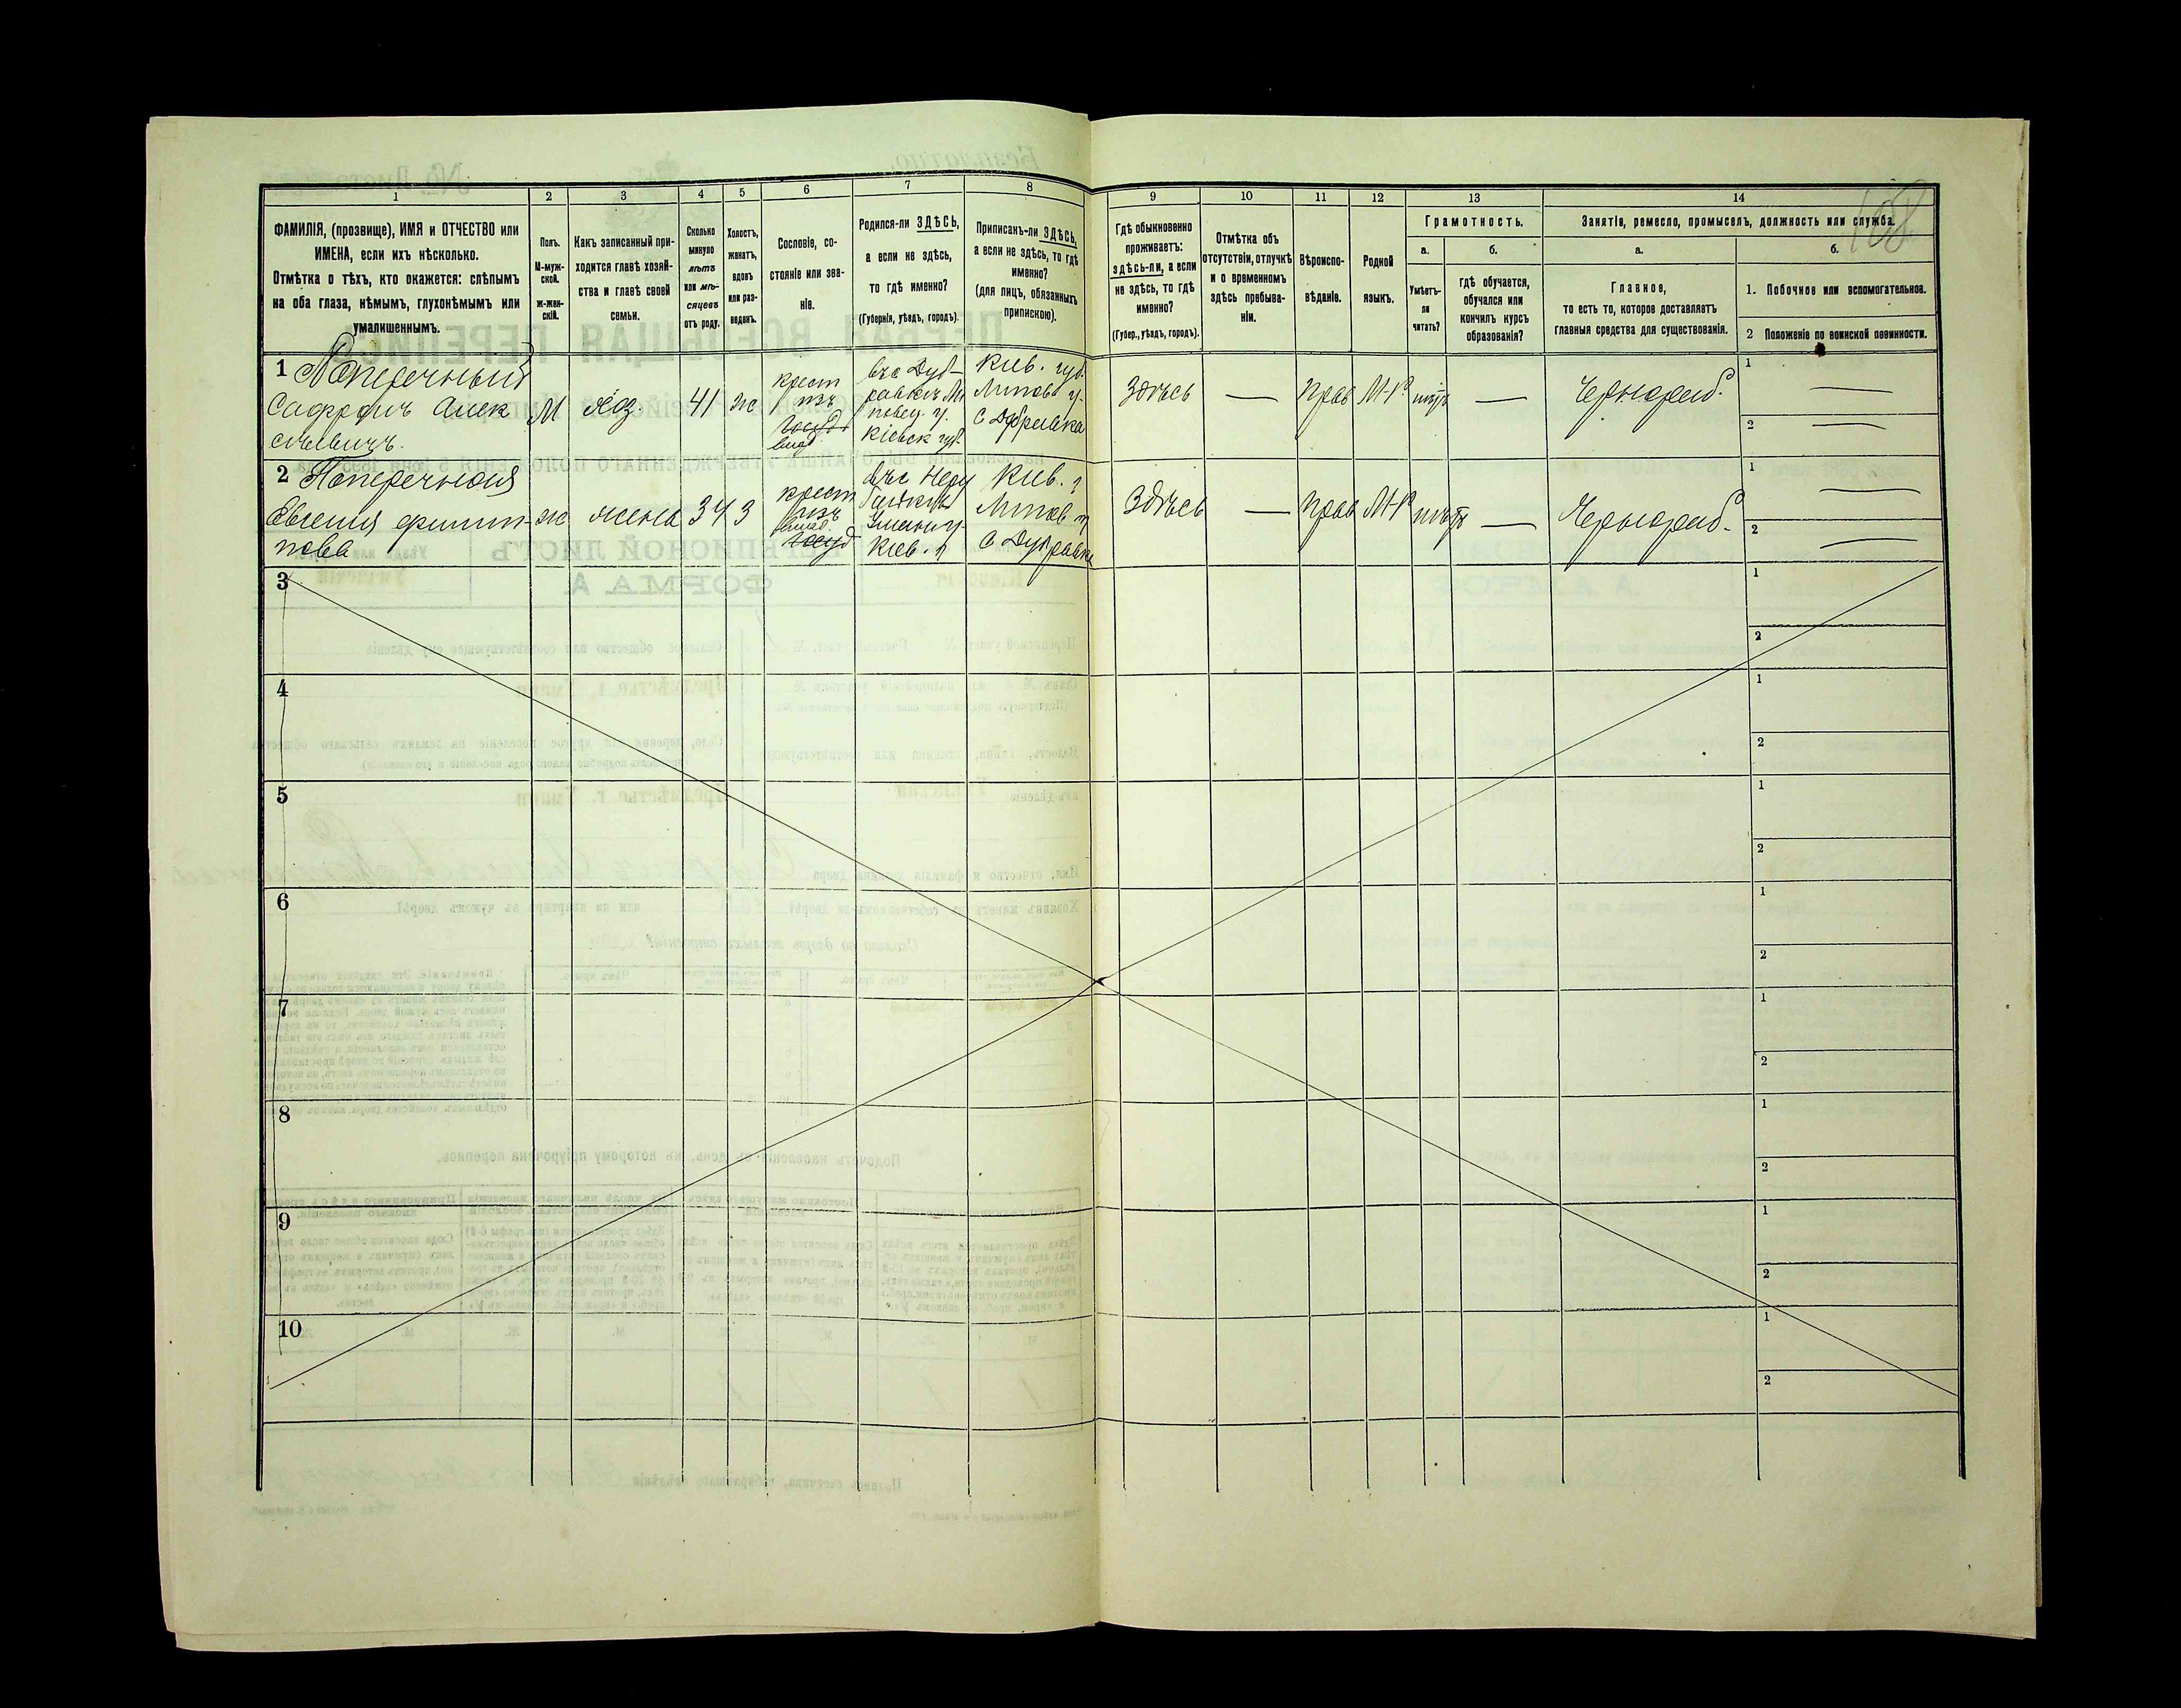 108
1
2
3
4
5
6
7
8
9
10
11
12
13
14
ФАМИЛІЯ, (прозвище), ИМЯ и ОТЧЕСТВО или
ИМЕНА, если ихъ нѣсколько.
Отмѣтка о тѣхъ, кто окажется: слѣпымъ
на оба глаза, нѣмымъ, глухонѣмымъ или
умалишеннымъ.
Полъ.
М-муж-
ской.
ж-жен-
скій.
Какъ записанный при-
ходится главѣ хозяй-
ства и главѣ своей
семьи.
Сколько
минуло
лѣтъ
или мѣ-
сяцевъ
отъ роду.
Холостъ,
женатъ,
вдовъ
или раз-
веденъ.
Сословіе, со-
стояніе или зва-
ніе.
Родился-ли ЗДѢСЬ,
а если не здѣсь,
то гдѣ именно?
(Губернія, уѣздъ, городъ).
Приписанъ-ли ЗДѢСЬ,
а если не здѣсь, то гдѣ
именно?
(для лицъ, обязанныхъ
припискою).
Гдѣ обыкновенно
проживаетъ:
здѣсь-ли, а если
не здѣсь, то гдѣ
именно?
(Губер., уѣздъ, городъ).
Отмѣтка объ
отсутствіи, отлучкѣ
и о временномъ
здѣсь пребыва-
ніи.
Вѣроиспо-
вѣданіе.
Родной
языкъ.
Грамотность.
а.
Умѣетъ-
ли
читать?
б.
Гдѣ обучается,
обучался или
кончилъ курсъ
образованія?
Занятія, ремесло, промыселъ, должность или служба.
а.
Главное,
то есть то, которое доставляетъ
главныя средства для существованія.
б.
1. Побочное или вспомогательное.
2 Положеніе по воинской повинности.
1 Поперечный
Сафронъ Алек
сѣевичъ.
М
хоз.
41
ж
крест
изъ
влад
въ с Дуб-
ровкѣ Ли
повец. у.
Кіевск губ.
Кіев. губ.
Липов у.
с Дубровка
Здѣсь
—
Прав
М-Р
нѣтъ
—
Чернораб.
1 —
2 —
2 Поперечная
Евгения Филип-
пова
ж
жена
34
З
крест
изъ
влад.
Уман у.
Кіев. г
Кіев. г
Липов у
с Дубровка
Здѣсь
—
Прав
М-Р
нѣтъ
—
Чернораб.
1 —
2 —
3
1
2
4
1
2
5
1
2
6
1
2
7
1
2
8
1
2
9
1
2
10
1
2